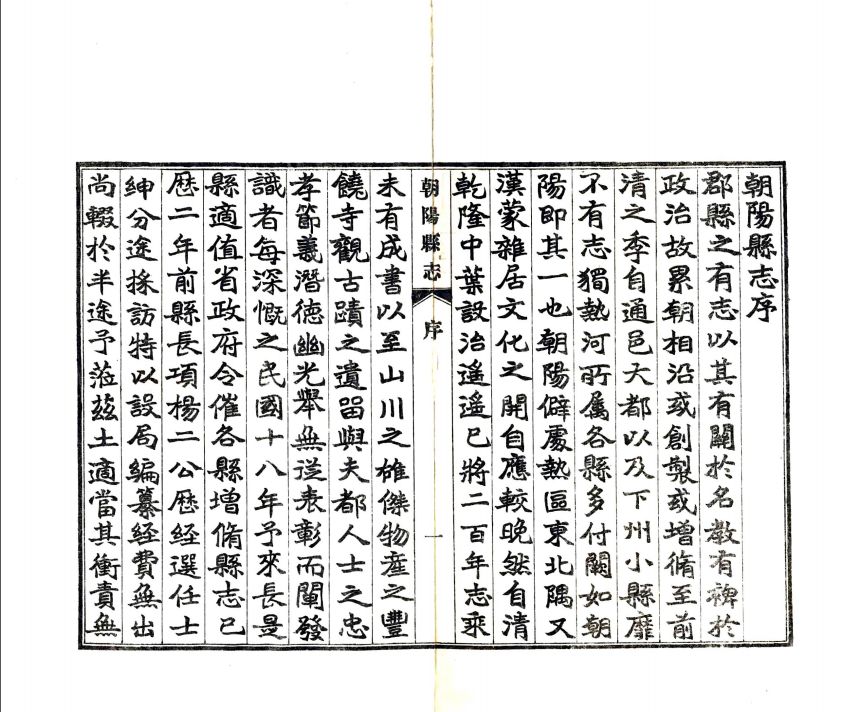 朝陽縣志序
郡縣之有志以其有關於名教有裨於
政治故累朝相沿或創製或增脩至前
清之季自通邑大都以及下州小縣靡
不有志獨熱河所属各縣多付闕如朝
陽即其一也朝陽僻處熱區東北隅又
漢蒙雜居文化之開自應較晚然自清
乾隆中葉設治遥遥已將二百年志乘
朝陽縣志
序
一
未有成書以至山川之雄傑物產之豐
饒寺觀古蹟之遺畱與夫都人士之忠
孝節義潛德幽光舉無從表彰而闡發
識者每深慨之民國十八年予來長是
縣適值省政府令催各縣增脩縣志已
歷二年前縣長項楊二公歷經選任士
紳分途採訪特以設局編纂經費無出
尚輟於半途予蒞兹土適當其衝責無